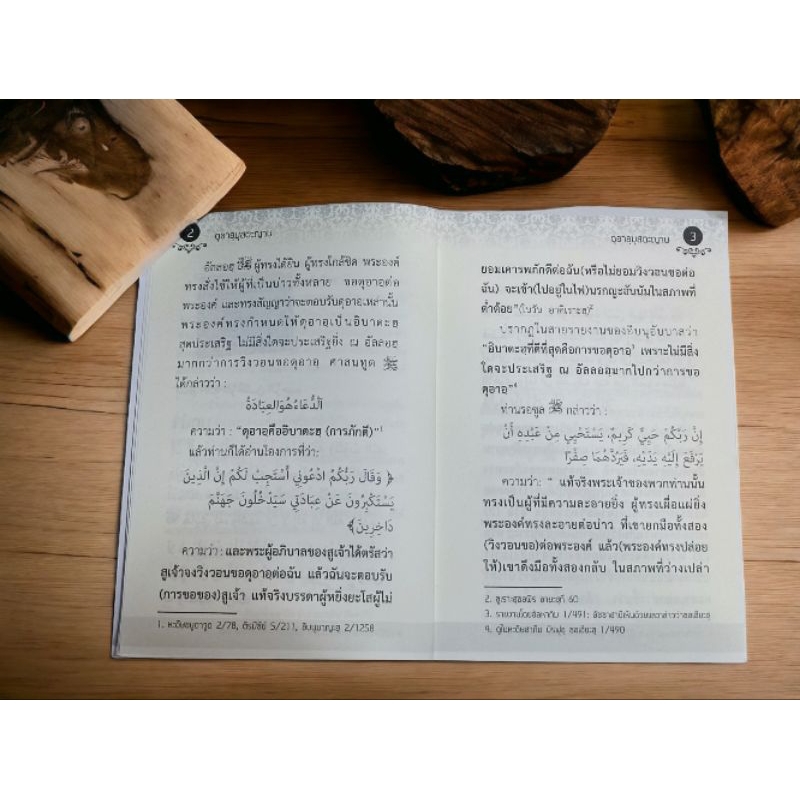 2
ดุอาอฺมุสตะญาบ
อัลลอฮฺ ﷻ ผู้ทรงได้ยิน ผู้ทรงใกล้ชิด พระองค์
ทรงสั่งใช้ให้ผู้ที่เป็นบ่าวทั้งหลาย ขอดุอาอฺต่อ
พระองค์ และทรงสัญญาว่าจะตอบรับดุอาอฺเหล่านั้น
พระองค์ทรงกำหนดให้ดุอาอฺเป็นอิบาดะฮฺ
สุดประเสริฐ ไม่มีสิ่งใดจะประเสริฐยิ่ง ณ อัลลอฮฺ
มากกว่าการวิงวอนขอดุอาอฺ ศาสนทูต ﷺ
ได้กล่าวว่า :
اَلدُّعَاءُ هُوَ الْعِبَادَةُ
ความว่า : “ดุอาอฺคืออิบาดะฮฺ (การภักดี)”¹
แล้วท่านก็ได้อ่านโองการที่ว่า:
﴿ وَقَالَ رَبُّكُمُ ادْعُونِي أَسْتَجِبْ لَكُمْ إِنَّ الَّذِينَ
يَسْتَكْبِرُونَ عَنْ عِبَادَتِي سَيَدْخُلُونَ جَهَنَّمَ
دَاخِرِينَ ﴾
ความว่า : และพระผู้อภิบาลของสูเจ้าได้ตรัสว่า
สูเจ้าจงวิงวอนขอดุอาอฺต่อฉัน แล้วฉันจะตอบรับ
(การขอของ)สูเจ้า แท้จริงบรรดาผู้หยิ่งยะโสผู้ไม่
1. หะดีษอบูดาวูด 2/78, ติรมีซีย์ 5/211, อิบนุมาญะฮฺ 2/1258
3
ดุอาอฺมุสตะญาบ
ยอมเคารพภักดีต่อฉัน(หรือไม่ยอมวิงวอนขอต่อ
ฉัน) จะเข้า(ไปอยู่ในไฟ)นรกญะฮันนัมในสภาพที่
ต่ำต้อย”(ในวัน อาคิเราะฮฺ)²
ปรากฏในสายรายงานของอิบนุอับบาสว่า
“อิบาดะฮฺที่ดีที่สุดคือการขอดุอาอฺ³ เพราะไม่มีสิ่ง
ใดจะประเสริฐ ณ อัลลอฮฺมากไปกว่าการขอ
ดุอาอฺ”⁴
ท่านรอซูล ﷺ กล่าวว่า :
إِنَّ رَبَّكُمْ حَيِيٌّ كَرِيمٌ، يَسْتَحْيِي مِنْ عَبْدِهِ أَنْ
يَرْفَعَ إِلَيْهِ يَدَيْهِ، فَيَرُدَّهُمَا صِفْرًا
ความว่า: “ แท้จริงพระเจ้าของพวกท่านนั้น
ทรงเป็นผู้ที่มีความละอายยิ่ง ผู้ทรงเผื่อแผ่ยิ่ง
พระองค์ทรงละอายต่อบ่าว ที่เขายกมือทั้งสอง
(วิงวอนขอ)ต่อพระองค์ แล้ว(พระองค์ทรงปล่อย
ให้)เขาดึงมือทั้งสองกลับ ในสภาพที่ว่างเปล่า
2. ซูเราะฮฺฆอฟิร อายะฮฺที่ 60
3. รายงานโดยอัลหากิม 1/491;
4. ดูในหะดีษฮากิม 1/490